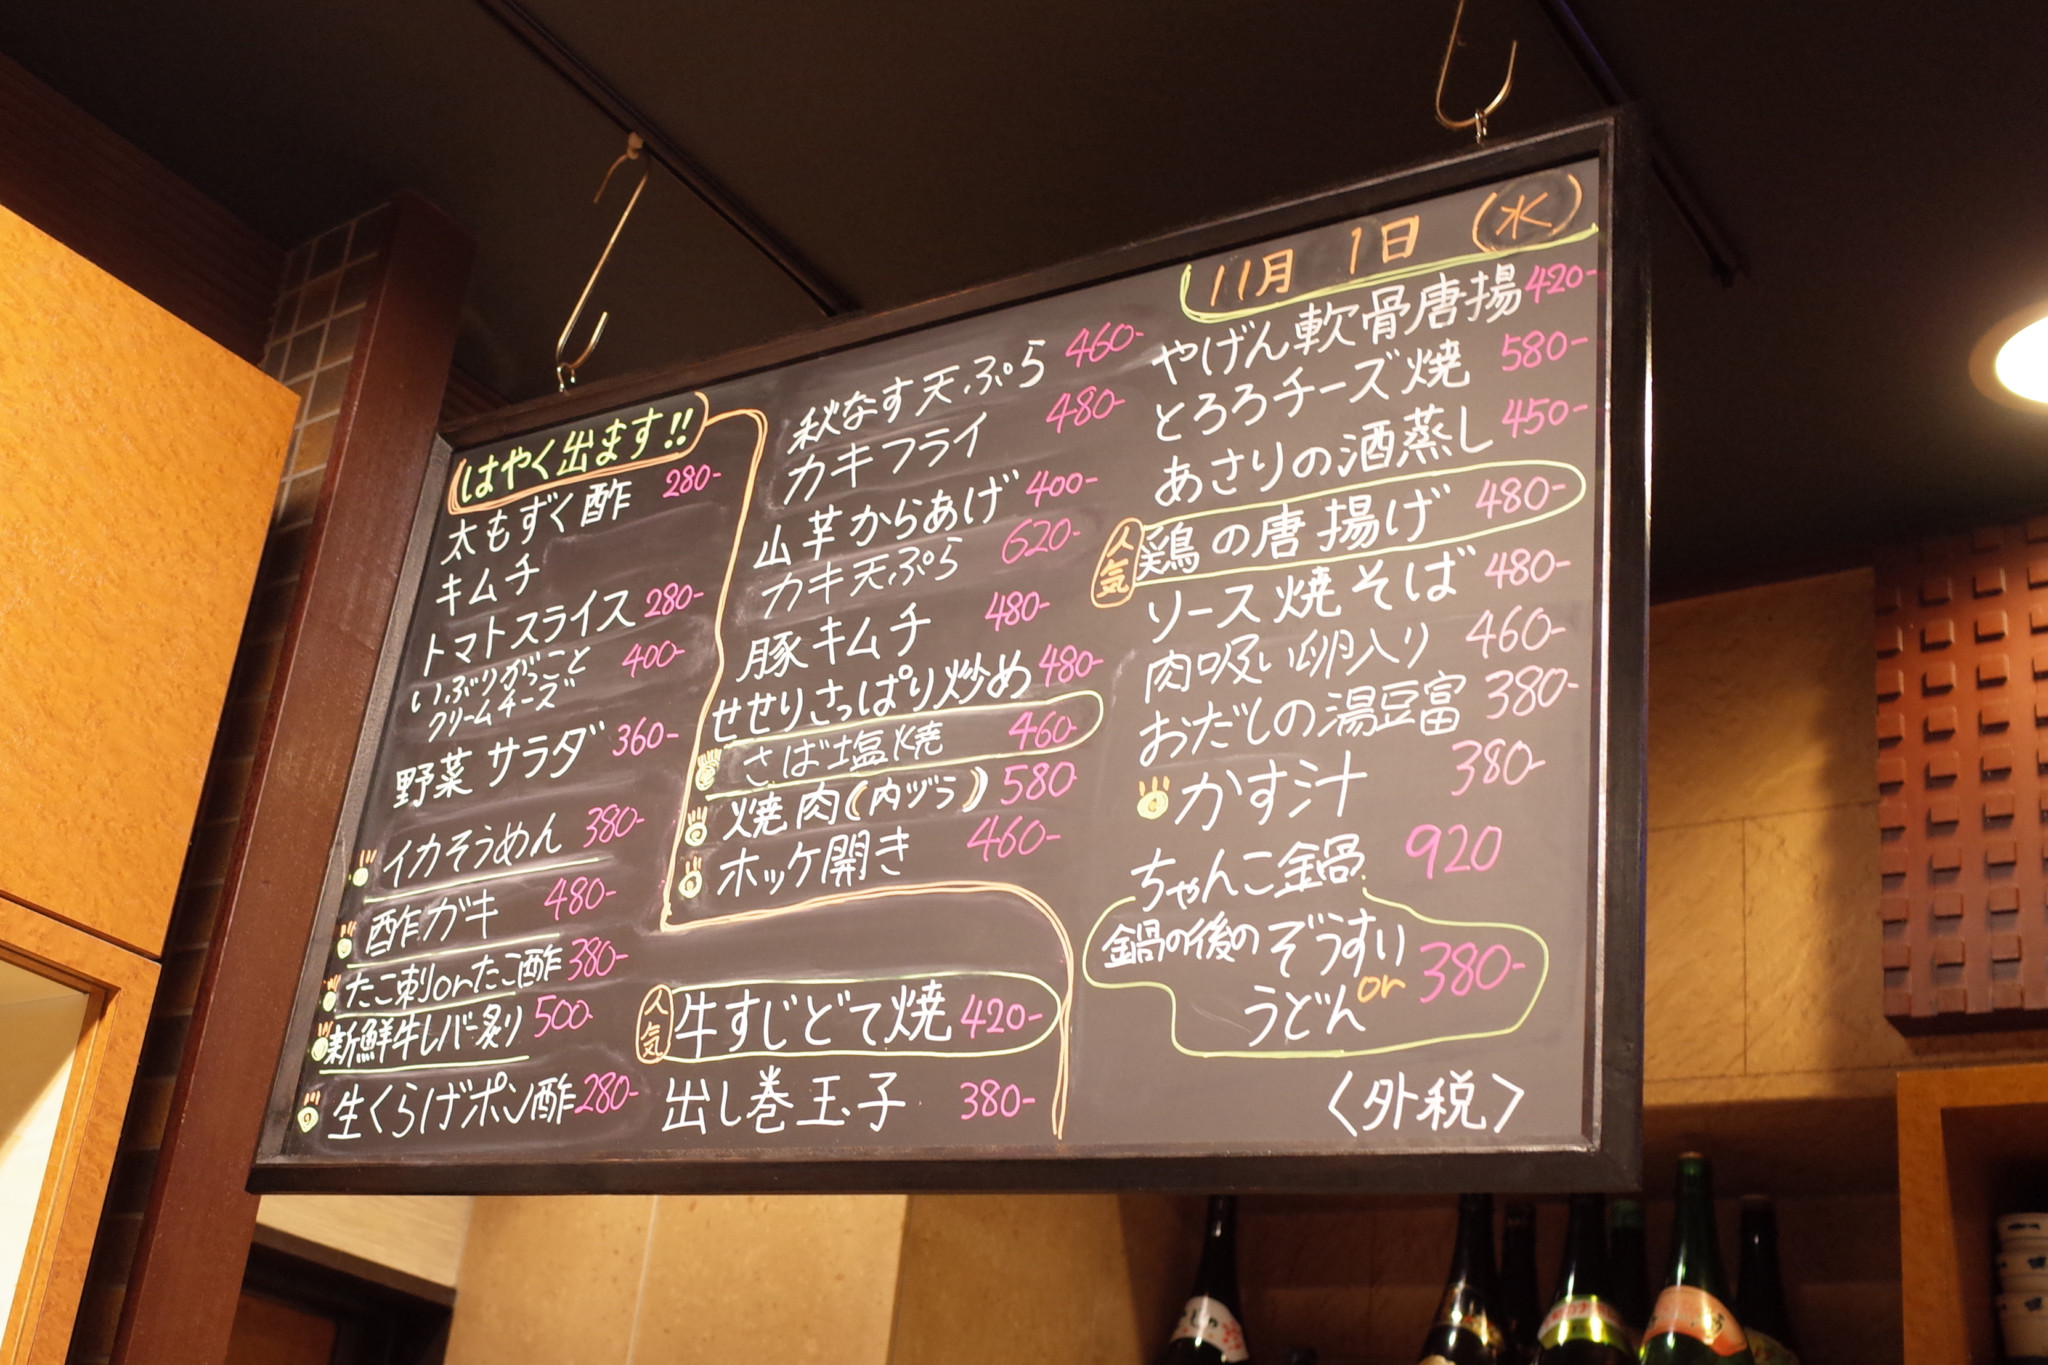 11月 1日 (水)
やげん軟骨唐揚 420-
とろろチーズ焼 580-
あさりの酒蒸し 450-
人気 鶏の唐揚げ 480-
ソース焼そば 480-
肉吸い卵入り 460-
おだしの湯豆富 380-
かす汁 380-
ちゃんこ鍋 920
鍋の後のぞうすい
or 380-
うどん
〈外税〉
秋なす天ぷら 460-
カキフライ 480-
山芋からあげ 400-
カキ天ぷら 620-
豚キムチ 480-
せせりさっぱり炒め 480-
さば塩焼 460-
焼肉(内ヅラ) 580
ホッケ開き 460-
はやく出ます!!
太もずく酢 280-
キムチ
トマトスライス 280-
いぶりがっこと 400-
クリームチーズ
野菜サラダ 360-
イカそうめん 380-
酢ガキ 480-
たこ刺orたこ酢 380-
新鮮牛レバー炙り 500-
生くらげポン酢 280-
人気 牛すじどて焼 420-
出し巻玉子 380-